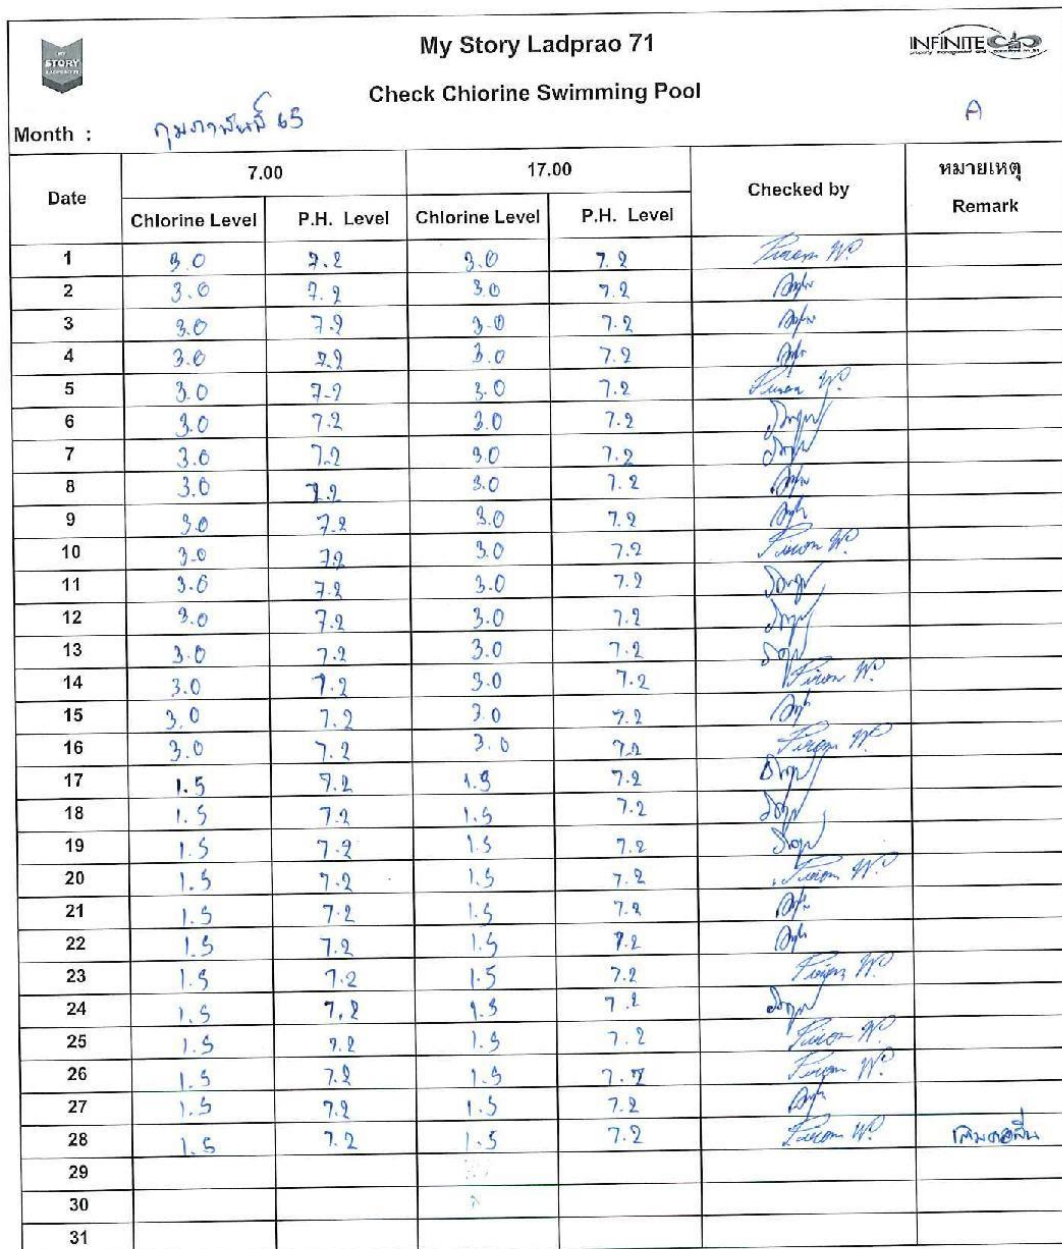 MY
STORY
My Story Ladprao 71
INFINITE
Check Chiorine Swimming Pool
A
Month : กุมภาพันธ์ 65
Date 7.00 17.00 Checked by หมายเหตุ Remark
Chlorine Level P.H. Level Chlorine Level P.H. Level
1 3.0 7.2 3.0 7.2
2 3.0 7.2 3.0 7.2
3 3.0 7.2 3.0 7.2
4 3.0 7.2 3.0 7.2
5 3.0 7.2 3.0 7.2
6 3.0 7.2 3.0 7.2
7 3.0 7.2 3.0 7.2
8 3.0 7.2 3.0 7.2
9 3.0 7.2 3.0 7.2
10 3.0 7.2 3.0 7.2
11 3.0 7.2 3.0 7.2
12 3.0 7.2 3.0 7.2
13 3.0 7.2 3.0 7.2
14 3.0 7.2 3.0 7.2
15 3.0 7.2 3.0 7.2
16 3.0 7.2 3.0 7.2
17 1.5 7.2 1.5 7.2
18 1.5 7.2 1.5 7.2
19 1.5 7.2 1.5 7.2
20 1.5 7.2 1.5 7.2
21 1.5 7.2 1.5 7.2
22 1.5 7.2 1.5 7.2
23 1.5 7.2 1.5 7.2
24 1.5 7.2 1.5 7.2
25 1.5 7.2 1.5 7.2
26 1.5 7.2 1.5 7.2
27 1.5 7.2 1.5 7.2
28 1.5 7.2 1.5 7.2
29
30
31